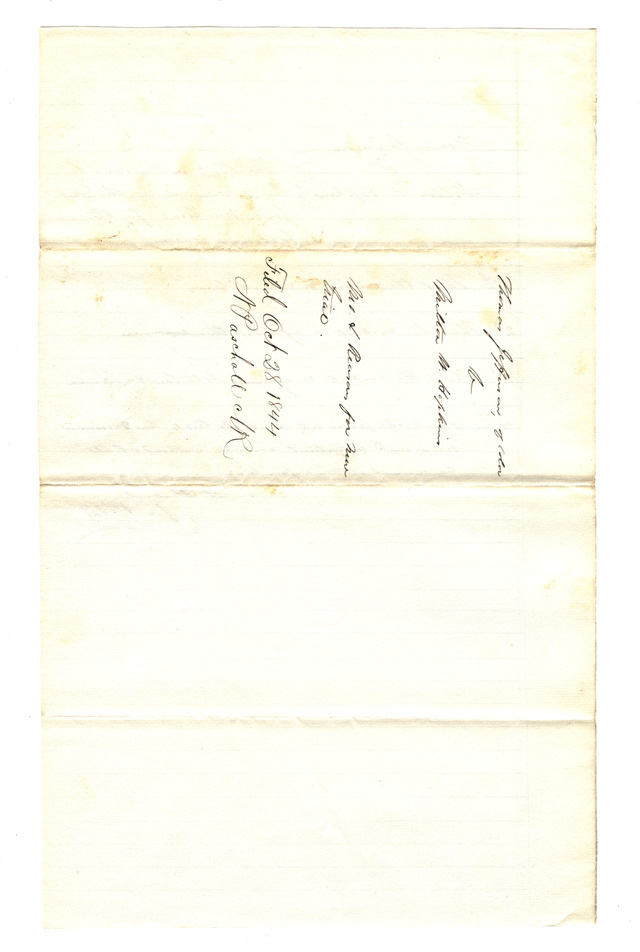 Thomas Jefferson, of Color
v
Milton W. Hopkins
Mo & Reasons for New
trial.
Filed Oct 28 1844
N Paschall Clk